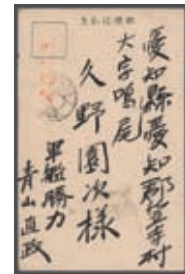 郵便はかき
愛知縣愛知郡笠寺村
大字鳴尾
久野園次様
軍艦勝力
青山直政